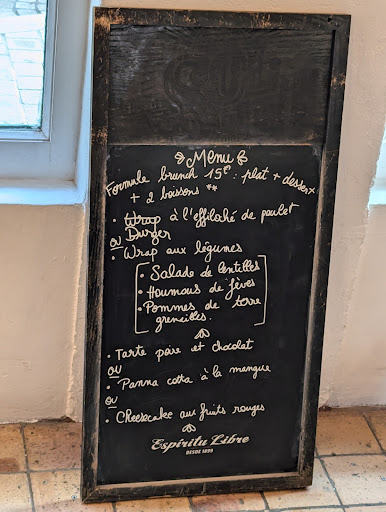 Menu
Formule brunch 15€ : plat + dessert
+ 2 boissons **
• Wrap à l'effiloché de poulet
ou Burger
• Wrap aux légumes
• Salade de lentilles
• Houmous de fèves
• Pommes de terre
grenailles.
• Tarte poire et chocolat
ou
• Panna cotta à la mangue
ou
• Cheesecake aux fruits rouges
Espíritu Libre
DESDE 1895